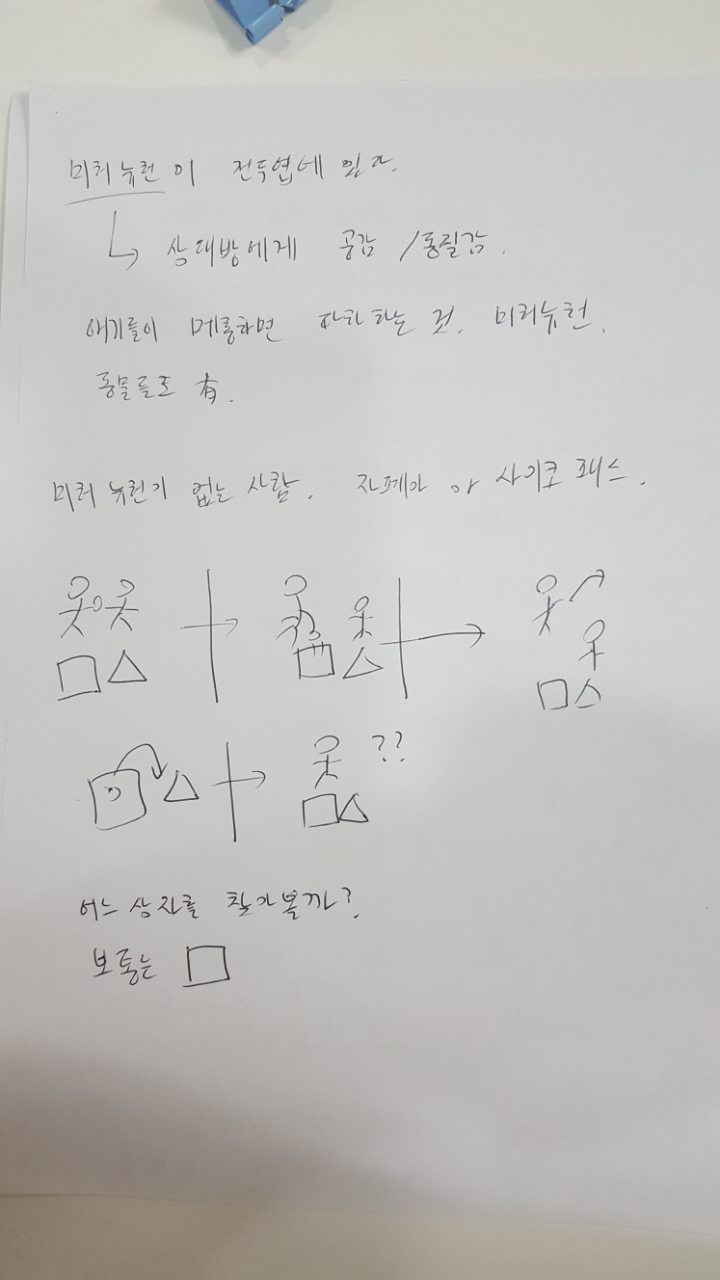 미러뉴런이 전두엽에 있다.
↳ 상대방에게 공감 / 동질감.
애기들이 메롱하면 따라하는 것. 미러뉴런.
동물들도 有.
미러 뉴런가 없는 사람. 자폐아 or 사이코패스.
??
어느 상자를 찾아볼까?
보통는 □